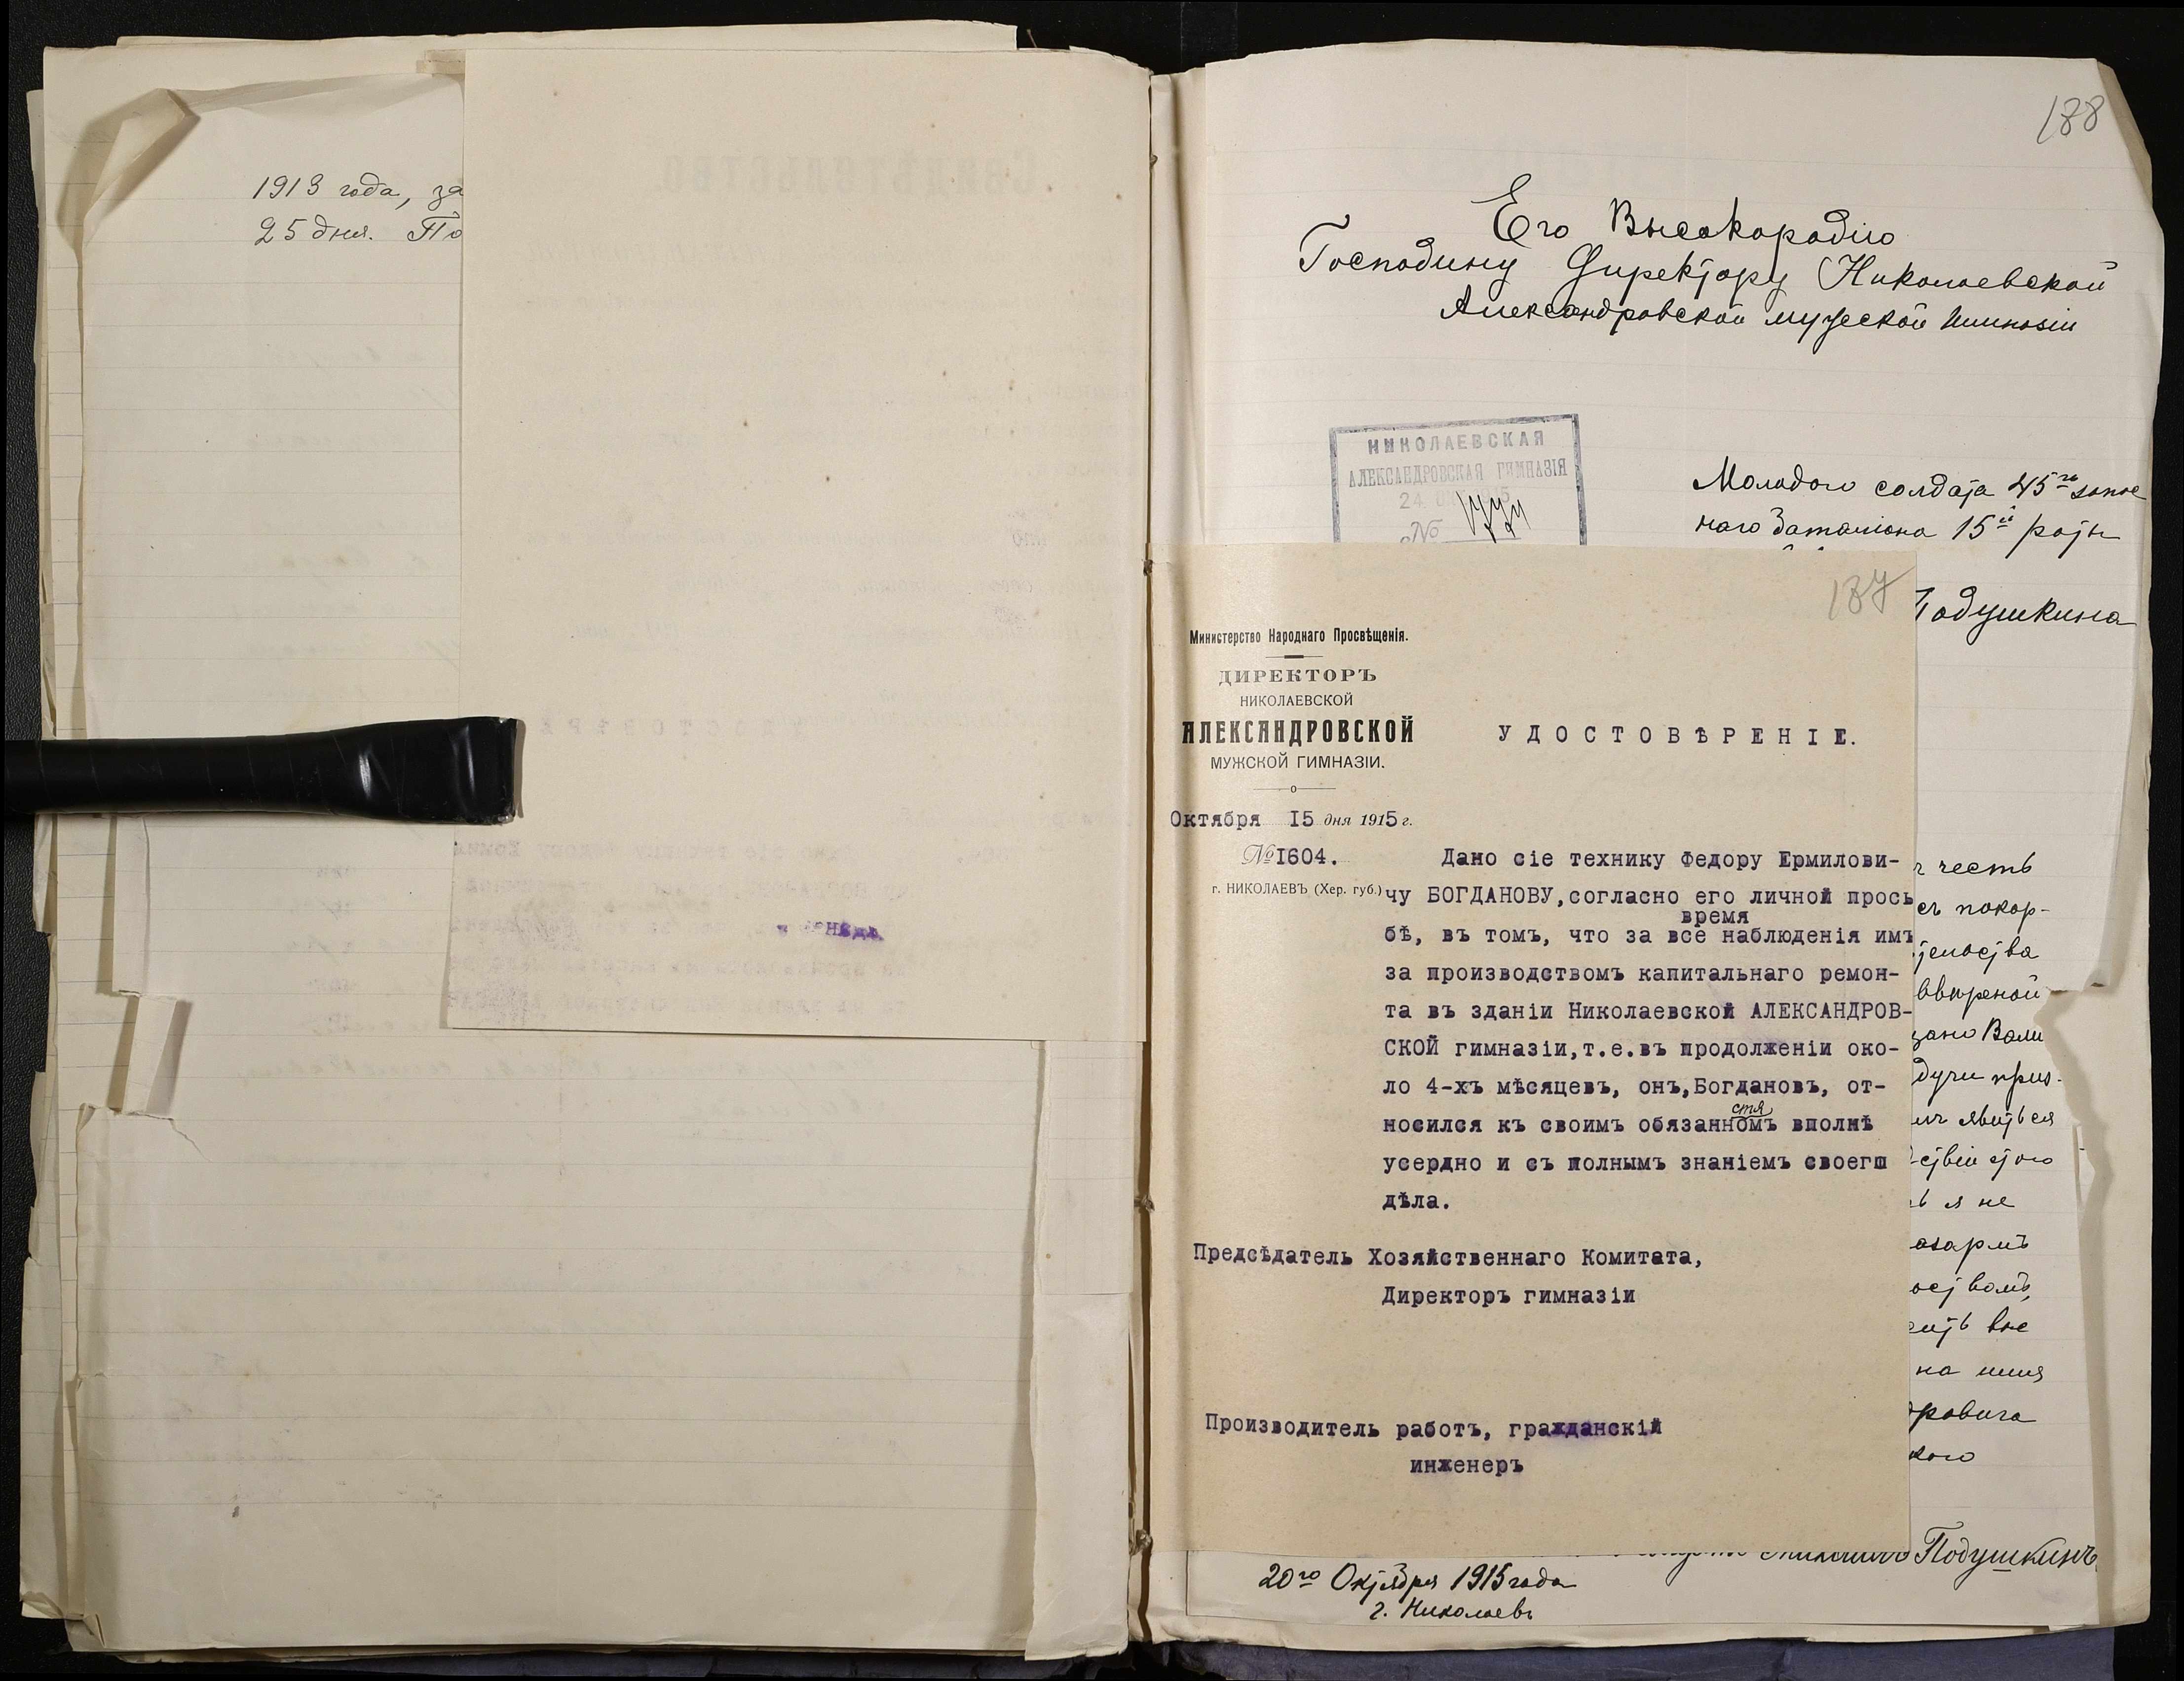 1913 года, за
25 дня. По
188
Его Высокородію
Господину Директору Николаевской
Александровской мужеской гимназіи
НИКОЛАЕВСКАЯ
АЛЕКСАНДРОВСКАЯ ГИМНАЗІЯ
24
№
Молодого солдата 45го запас
наго баталіона 15й роты
Подушкина
187
Министерство Народнаго Просвѣщенія.
ДИРЕКТОРЪ
НИКОЛАЕВСКОЙ
АЛЕКСАНДРОВСКОЙ
МУЖСКОЙ ГИМНАЗІИ.
Октября 15 дня 1915 г.
№ 1604.
г. НИКОЛАЕВЪ (Хер. губ.)
УДОСТОВѢРЕНІЕ.
Дано сіе технику Федору Ермилови-
чу БОГДАНОВУ, согласно его личной прось
время
бѣ, въ томъ, что за все наблюденія имъ
за производствомъ капитальнаго ремон-
та въ зданіи Николаевской АЛЕКСАНДРОВ-
СКОЙ гимназіи, т.е. въ продолженіи око-
ло 4-хъ мѣсяцевъ, онъ, Богдановъ, от-
стя
носился къ своимъ обязанномъ вполнѣ
усердно и съ полнымъ знаніемъ своего
дѣла.
Предсѣдатель Хозяйственнаго Комитата,
Директоръ гимназіи
Производитель работъ, гражданскій
инженеръ
честь
покор-
ввѣреной
Вами
явиться
я не
вые
на имя
Подушкинъ
20го Октября 1915 года
г. Николаевъ